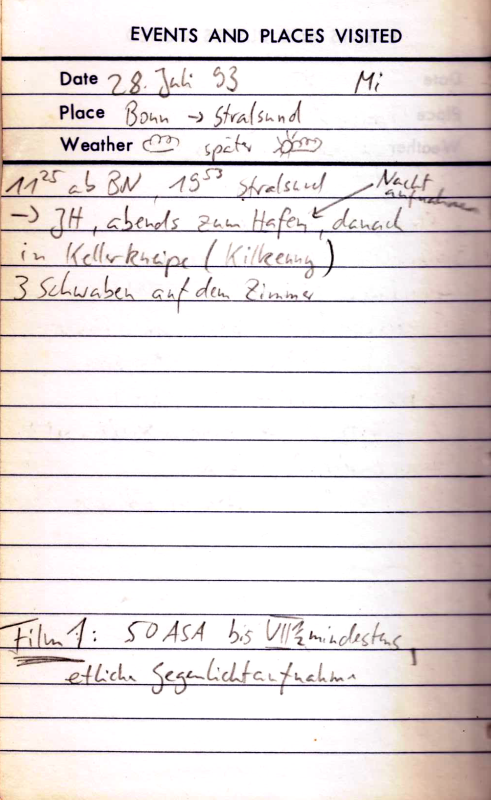 EVENTS AND PLACES VISITED
Date 28. Juli 93 Mi
Place Bonn → Stralsund
Weather später
11²⁵ ab BN, 19⁵³ Stralsund Nacht
aufnahmen
→ JH, abends zum Hafen, danach
in Kellerkneipe (Kilkenny)
3 Schwaben auf dem Zimmer
Film 1: 50 ASA bis mindestens,
etliche Gegenlichtaufnahmen